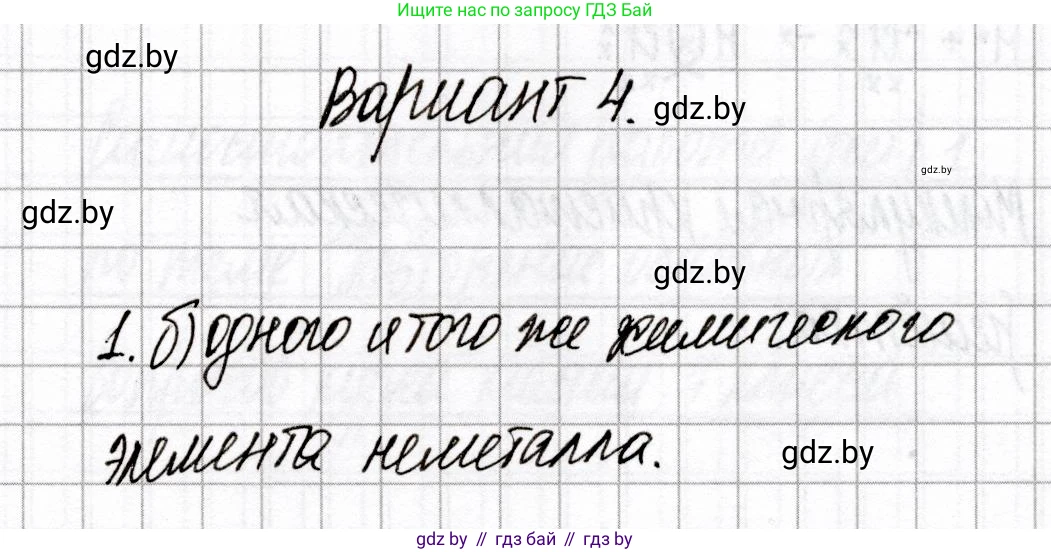 Ищите нас по запросу ГДЗ Бай
gdz.by
Вариант 4.
gdz.by
gdz.by
gdz.by
gdz.by
1. б) одного и того же химического
элемента неметалла.
gdz.by
gdz.by // гдз бай // гдз by